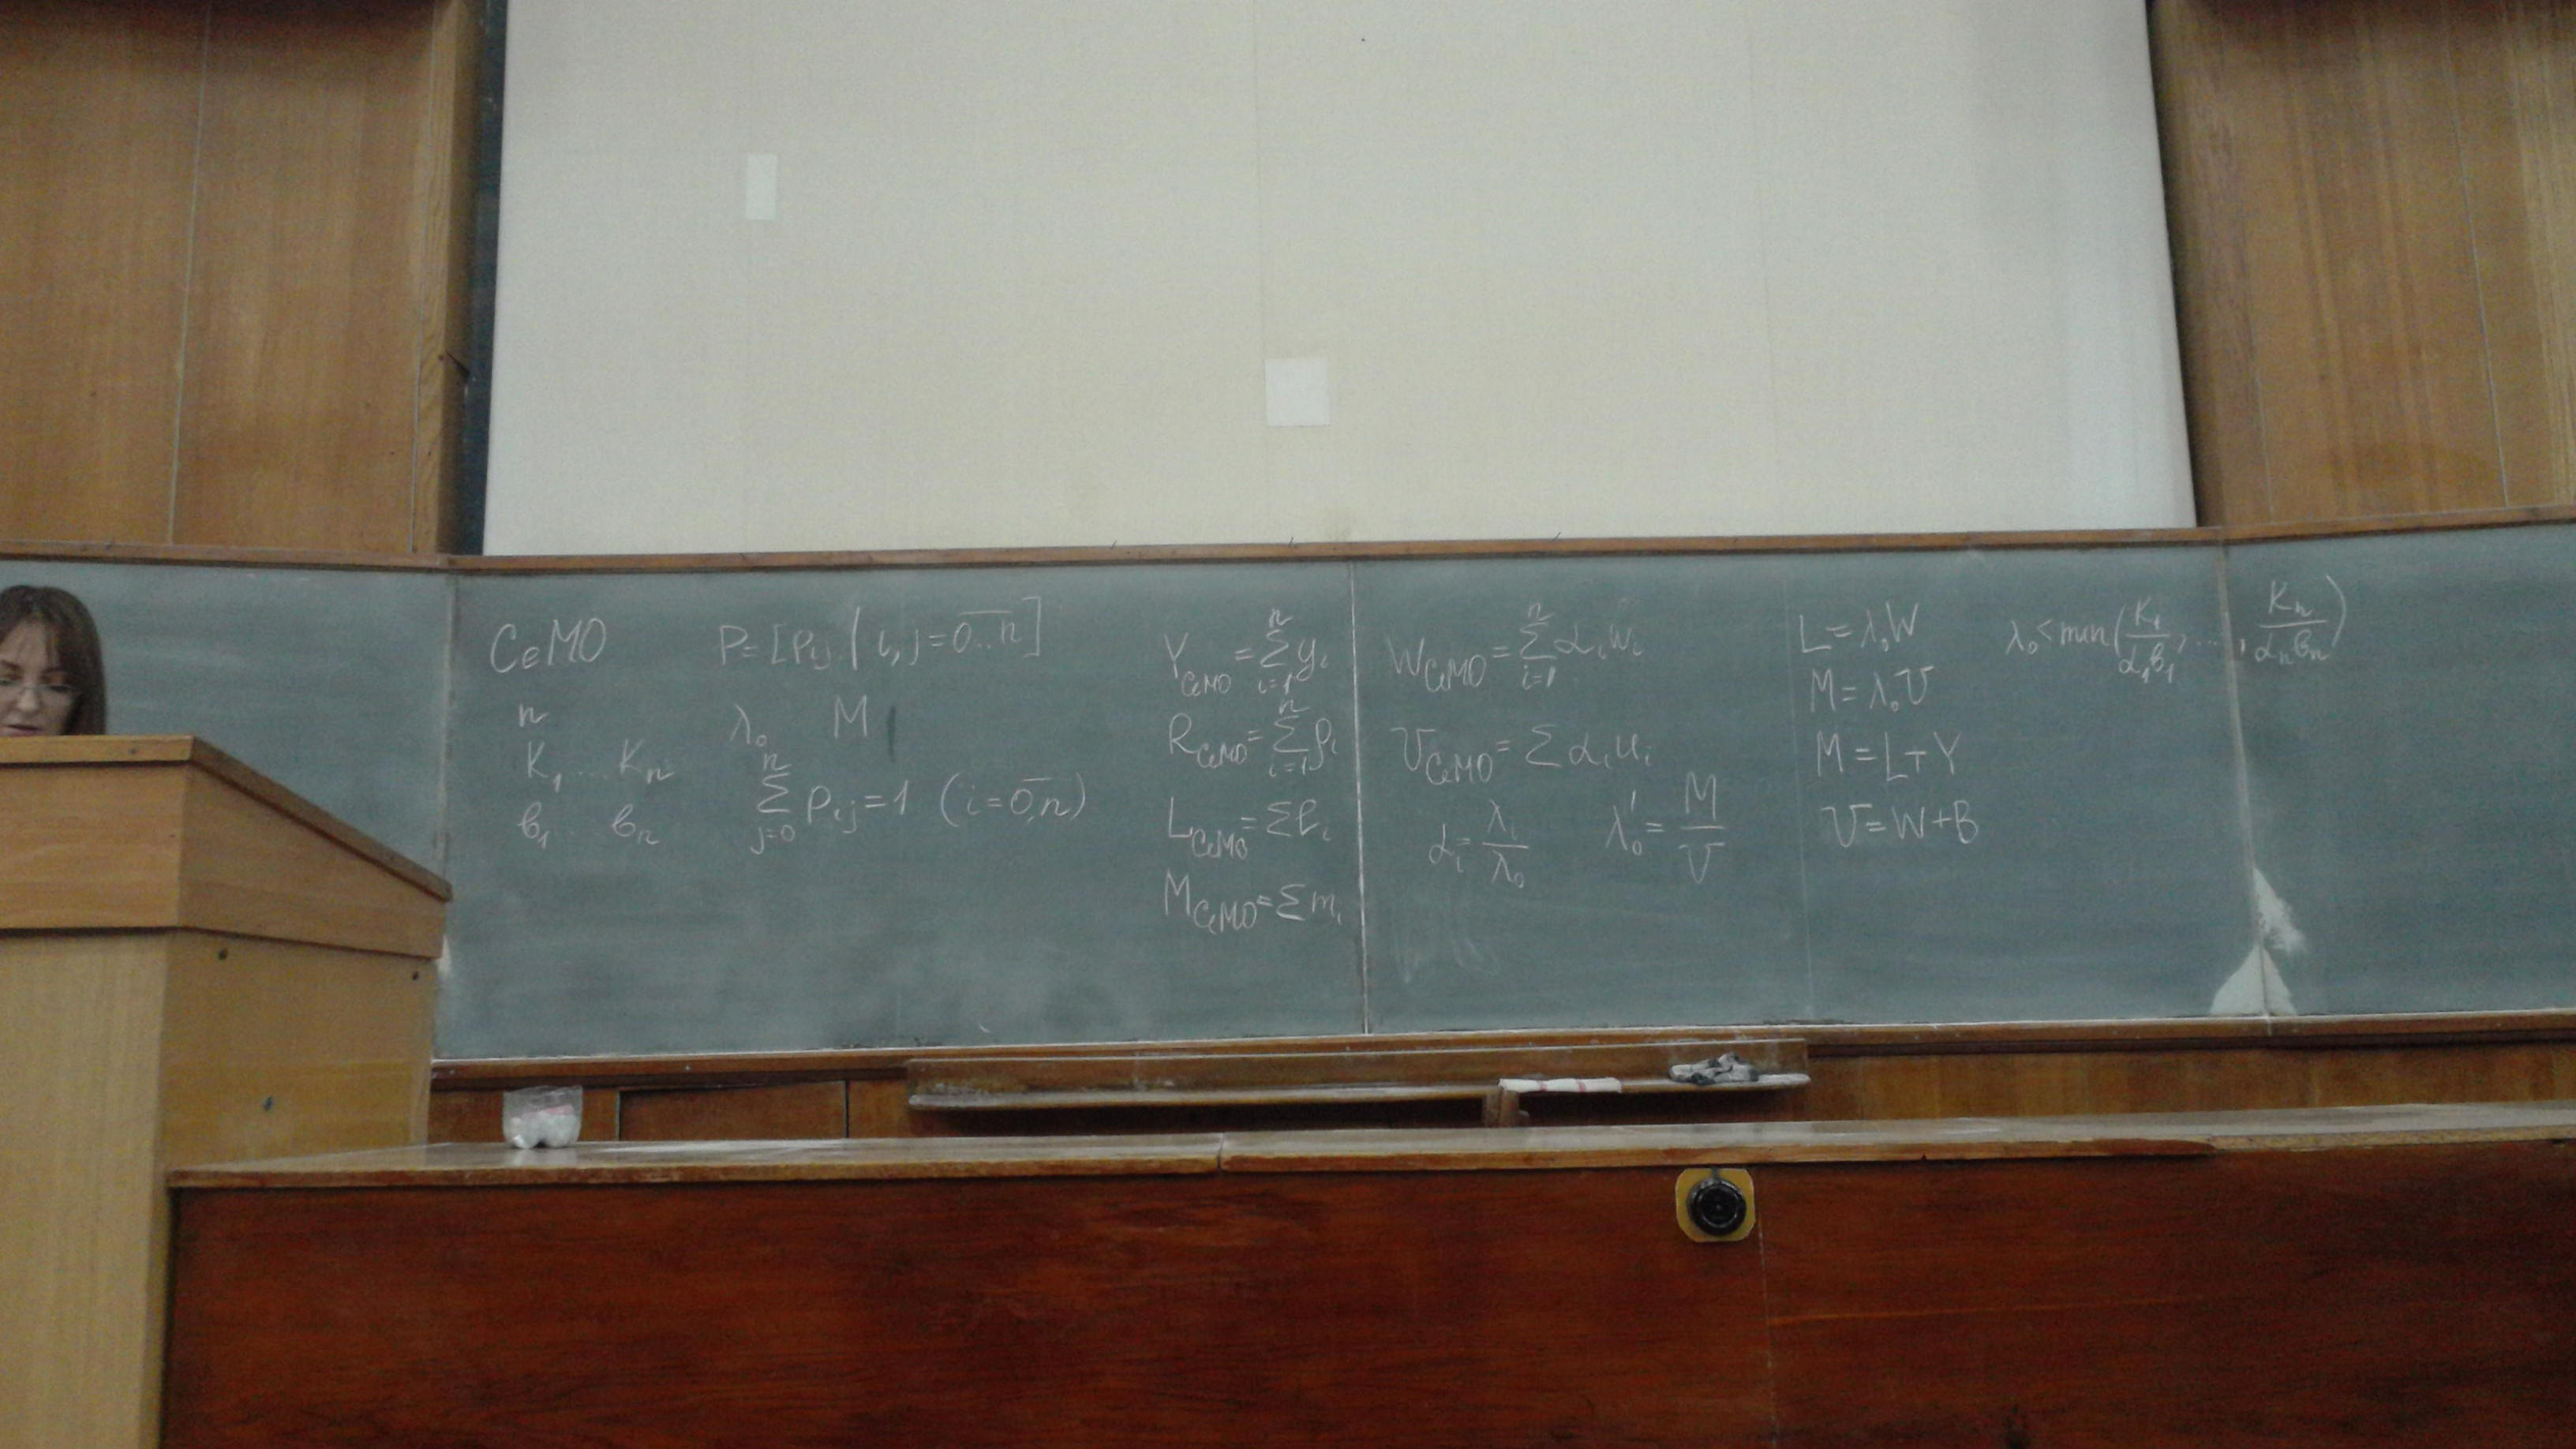 СеМО
n
K₁ ... Kₙ
в₁ .. вₙ
P = [Pij / i, j = 0..n]
λ₀ M
∑ⱼ₌₀ⁿ Pij = 1 (i = 0,n)
Y СеМО = ∑ᵢ₌₁ⁿ yᵢ
R СеМО = ∑ᵢ₌₁ⁿ ρᵢ
L СеМО = ∑ ℓᵢ
M СеМО = ∑ mᵢ
W СеМО = ∑ᵢ₌₁ⁿ αᵢ wᵢ
U СеМО = ∑ αᵢ uᵢ
αᵢ = λᵢ / λ₀
λ₀' = M / U
L = λ₀ W
M = λ₀ U
M = L + Y
U = W + B
λ₀ < min (K₁ / α₁в₁, ..., Kₙ / αₙвₙ)